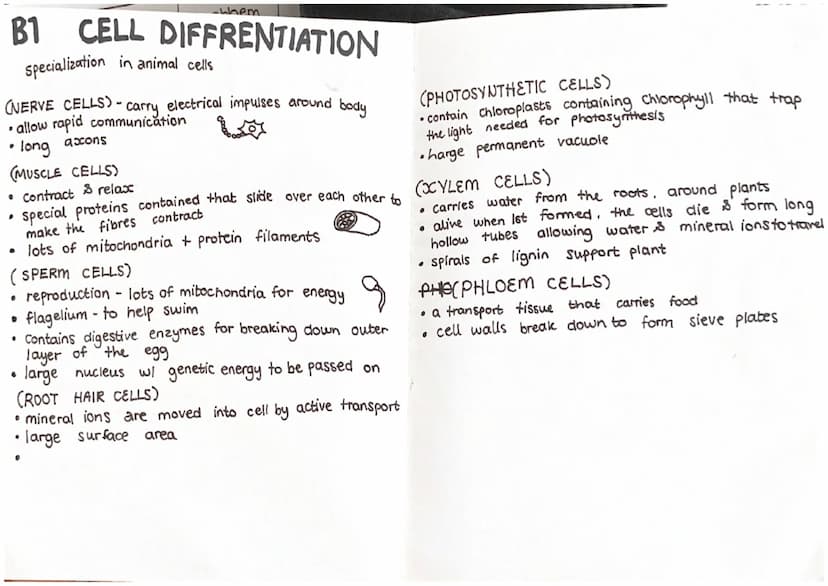 B1 CELL DIFFRENTIATION
specialization in animal cells
(NERVE CELLS) - carry electrical impulses around body
• allow rapid communication
• long axons
(MUSCLE CELLS)
• contract & relax
• special proteins contained that slide over each other to
make the fibres contract
• lots of mitochondria + protein filaments
(SPERM CELLS)
• reproduction - lots of mitochondria for energy
• flagelium - to help swim
• contains digestive enzymes for breaking down outer
layer of the egg
• large nucleus w/ genetic energy to be passed on
(ROOT HAIR CELLS)
• mineral ions are moved into cell by active transport
• large surface area
•
(PHOTOSYNTHETIC CELLS)
• contain chloroplasts containing chlorophyll that trap
the light needed for photosynthesis
• harge permanent vacuole
(XYLEM CELLS)
• carries water from the roots, around plants
• alive when 1st formed, the cells die & form long
hollow tubes allowing water & mineral ions to travel
• spirals of lignin support plant
(PHLOEM CELLS)
• a transport tissue that carries food
• cell walls break down to form sieve plates